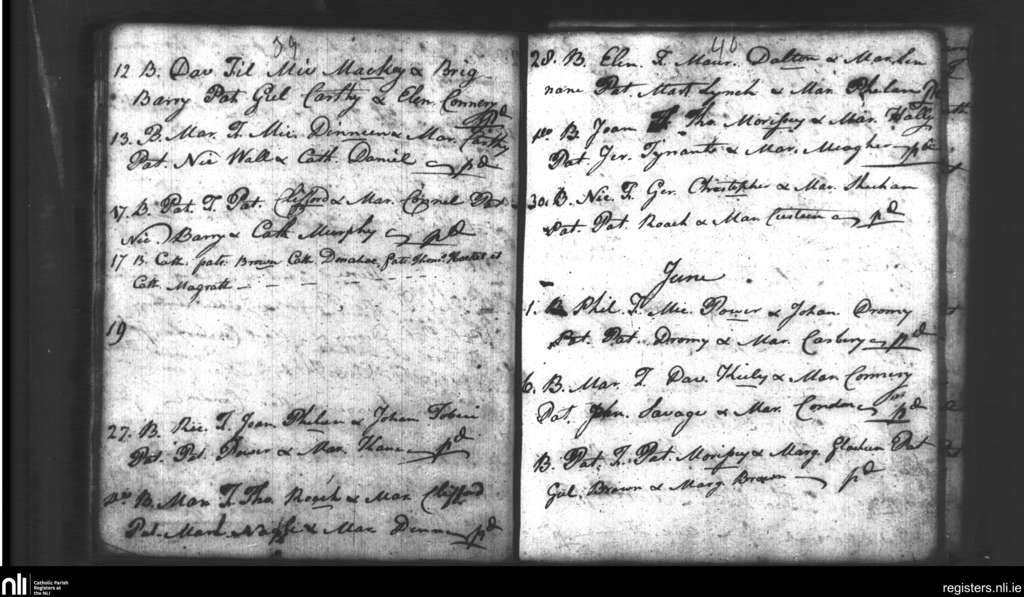 39
12 B. Dav Fil Mic Mackey & Brig
Barry Pat Giel Carthy & Elen Connery pd
13. B. Mar. F. Mic. Dinneen & Mar. Carthy
Pat. Nic Wall & Cath. Daniel pd
17 B. Pat. F. Pat. Clifford & Mar. Connel Pat
Nic. Barry & Cath Murphy pd
17 B. Cath. pate Brown Cath Donahoe Pat
Cath Magrath
19
27. B. Ric. F. Joan Phelan & Johan Tobin
Pat. Pat. Power & Mar. Kane pd
B. Mar F. Tho Roach & Mar Clifford
Pat. & Mar. Dunn pd
40
28. B. Elen. F. Maur. Dalton & Mar. Lin
nane Pat. Mart Lynch & Mar. Phelan pd
B Joan F Tho Morissy & Mar. Hally
Pat. Jer. Tynante & Mar. Meagher pd
30. B. Nic. F. Ger. Christopher & Mar. Sheehan
Pat. Pat. Roach & Mar pd
June
1. B Phil. F. Mic. Power & Johan. Dromy
Pat. Pat. Dromy & Mar. Casbery pd
6. B. Mar. F. Dav. Kiely & Mar Connery
Pat. John. Savage & Mar. Condon pd
B. Pat. F. Pat. Morissy & Marg. Pat
Gul. Brown & Marg Brown pd
nli
Catholic Parish
Registers at
the NLI
registers.nli.ie